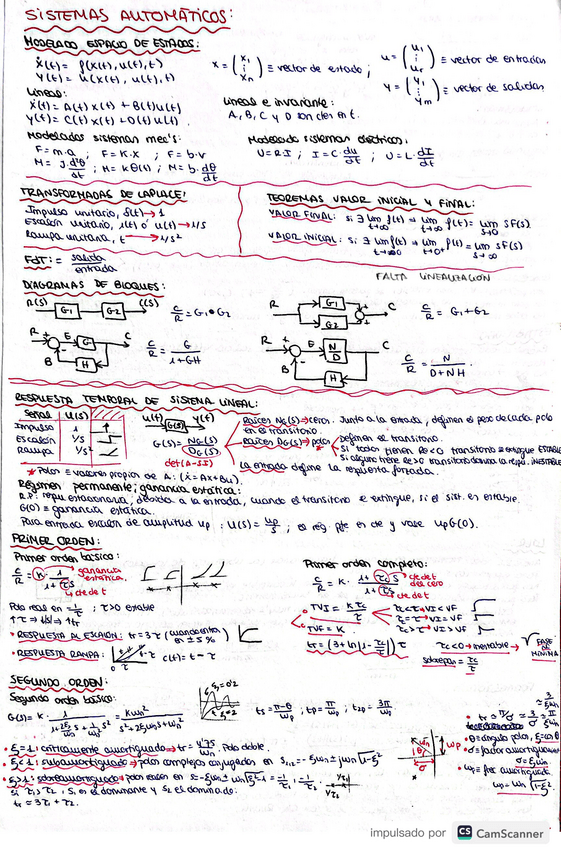 SISTEMAS AUTOMÁTICOS:
MODELADO ESPACIO DE ESTADOS:
ẋ(t) = f(x(t), u(t), t)
y(t) = u(x(t), u(t), t)
x = (x1 ⋮ xn) ≡ vector de estado ;
u = (u1 ⋮ ur) ≡ vector de entradas
y = (y1 ⋮ ym) ≡ vector de salidas
Lineal:
ẋ(t) = A(t) x(t) + B(t) u(t)
y(t) = C(t) x(t) + D(t) u(t)
Lineal e invariante:
A, B, C y D son ctes en t.
Modelados sistemas mec's:
F = m·a ; F = K·x ; F = b·v
M = J·d²θ/dt ; M = Kθ(t) ; M = b·dθ/dt
Modelado sistemas eléctricos:
U = R·I ; I = C·du/dt ; U = L·dI/dt
TRANSFORMADAS DE LAPLACE:
Impulso unitario, δ(t) → 1
Escalón unitario, 1(t) ó u(t) → 1/s
Rampa unitaria, t → 1/s²
TEOREMAS VALOR INICIAL Y FINAL:
VALOR FINAL: si ∃ lim t→∞ f(t) → lim t→∞ f(t) = lim s→0 SF(s)
VALOR INICIAL: si ∃ lim f(t) → lim t→0+ f(t) = lim s→∞ SF(s)
FdT: = salida/entrada
FALTA LINEALIZACIÓN
DIAGRAMAS DE BLOQUES:
R(s) G1 G2 C(s)
C/R = G1·G2
R G1 G2 C
C/R = G1+G2
R + - E G C B H
C/R = G/1+GH
R + - E N/D C B H
C/R = N/D+NH
RESPUESTA TEMPORAL DE SISTEMA LINEAL:
Señal U(s)
Impulso 1
Escalón 1/s
Rampa 1/s²
u(t) G(s) y(t)
G(s) = NG(s)/DG(s)
det(A-SI)
Raíces NG(s) → ceros. Junto a la entrada, definen el peso de cada polo en el transitorio.
Raíces DG(s) → polos → definen el transitorio.
Si todos tienen Re<0 transitorio se extingue ESTABLE
Si alguno tiene Re>0 transitorio domina la resp. INESTABLE
La entrada define la respuesta forzada.
* Polos ≡ valores propios de A: (ẋ = Ax+Bu).
Régimen permanente; ganancia estática:
R.P: respu estacionaria, debida a la entrada, cuando el transitorio se extingue, si el sist. es estable.
G(0) ≡ ganancia estática.
Para entrada escalón de amplitud up : U(s) = up/s ; el rég. pte es cte y vale up G(0).
PRIMER ORDEN:
Primer orden básico:
C/R = K · 1/1+τs
ganancia estática.
cte de t
Polo real en -1/τ ; τ>0 estable
• RESPUESTA AL ESCALÓN: tr = 3τ (cuando entra en ±5%)
• RESPUESTA RAMPA: c(t) = t - τ
Primer orden completo:
C/R = K · 1+τcs/1+τs
cte de t del cero
cte de t
• TVI = K τc/τ
TVF = K
τc<τ → VI<VF
τc=τ → VI=VF
τc>τ → VI>VF
tr = (3+ln|1-τc/τ|) τ
τc<0 → inestable → FASE NO MÍNIMA
sobrepas = τc/τ
SEGUNDO ORDEN:
Segundo orden básico:
G(s) = K · 1/1+2ξ/ωn s+1/ωn² s² = Kωn²/s²+2ξωns+ωn²
ts = π-θ/ωp ; tp = π/ωp ; t2p = 3π/ωp
• ξ=1: críticamente amortiguado → tr = 4'75/ωn polo doble.
• ξ<1: subamortiguado → polos complejos conjugados en s1,2 = -ξωn ± jωn√1-ξ²
• ξ>1: sobreamortiguado → polos reales en s = -ξωn ± ωn√ξ²-1 = -1/τ1 ; -1/τ2
Si τ1 > τ2 → S1 es el dominante y S2 es el dominado:
tr ≈ 3τ1 + τ2.
• tr ≈ π/σ ≈ 3/σ ≈ π/ξωn
• θ = ángulo polos, ξ = cos θ
• σ = factor amortiguamiento
σ = ξωn
• ωp = frec amortiguada.
ωp = ωn √1-ξ²
impulsado por CS CamScanner